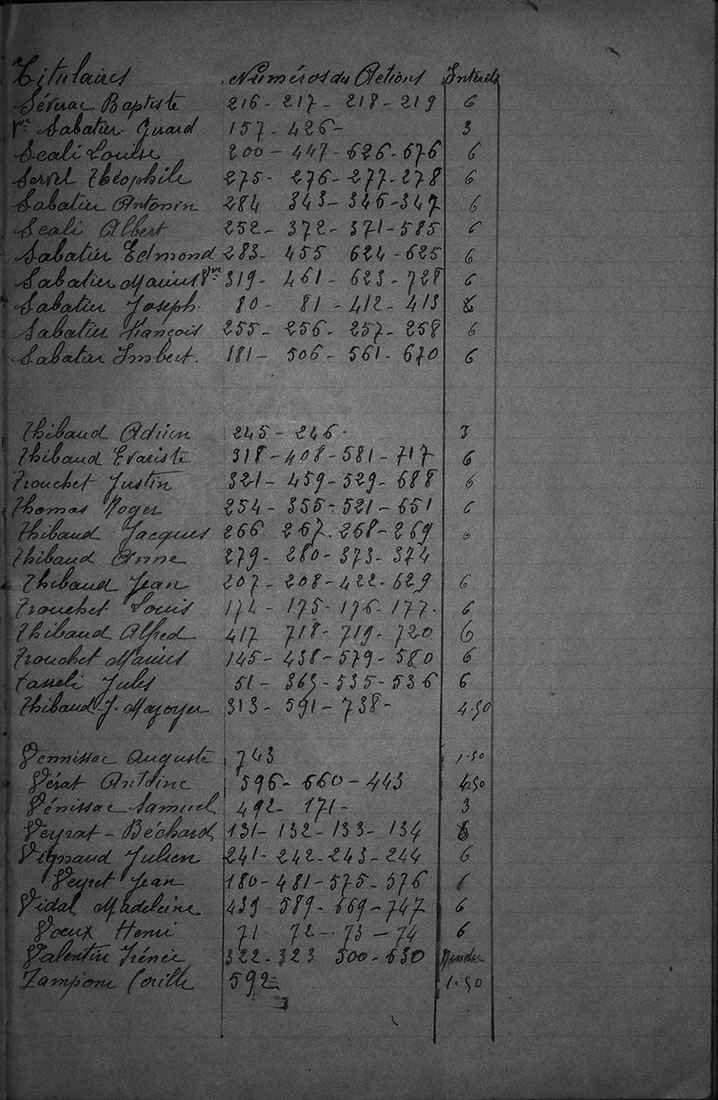 Titulaires Numéros des Actions Intérêts
Séverac Baptiste 216 - 217 - 218 - 219 6
Vve Sabatier Guard 157 - 426 - 3
Scali Louise 200 - 447 - 626 - 676 6
Servel Théophile 275 - 276 - 277 - 278 6
Sabatier Antonin 284 343 - 346 - 347 6
Scali Albert 252 - 372 - 371 - 585 6
Sabatier Edmond 283 - 455 624 - 625 6
Sabatier Marius 319 - 461 - 623 - 728 6
Sabatier Joseph 80 - 81 - 412 - 413 6
Sabatier François 255 - 256 - 257 - 258 6
Sabatier Imbert 181 - 506 - 561 - 670 6
Thibaud Adrien 245 - 246 - 3
Thibaud Evariste 318 - 408 - 581 - 717 6
Trouchet Justin 321 - 459 - 529 - 688 6
Thomas Roger 254 - 355 - 521 - 651 6
Thibaud Jacques 266 267 - 268 - 269 6
Thibaud Anne 279 - 280 - 373 - 374
Thibaud Jean 207 - 208 - 422 - 629 6
Trouchet Louis 174 - 175 - 176 - 177 - 6
Thibaud Alfred 417 718 - 719 - 720 6
Trouchet Marius 145 - 438 - 579 - 580 6
Tasseli Jules 51 - 363 - 535 - 536 6
Thibaud J. Mazoyer 313 - 591 - 738 - 4.50
Vennissac Auguste 743 1.50
Vérat Antoine 596 - 660 - 443 4.50
Vénissac Samuel 492 - 171 - 3
Veyrat - Béchard 131 - 132 - 133 - 134 6
Vignaud Julien 241 - 242 - 243 - 244 6
Veyret Jean 180 - 481 - 575 - 576 6
Vidal Madeleine 439 - 589 - 669 - 747 6
Vœux Henri 71 - 72 - 73 - 74 6
Valentin Irénée 322 - 323 500 - 630
Zampone Cerille 592 1.50